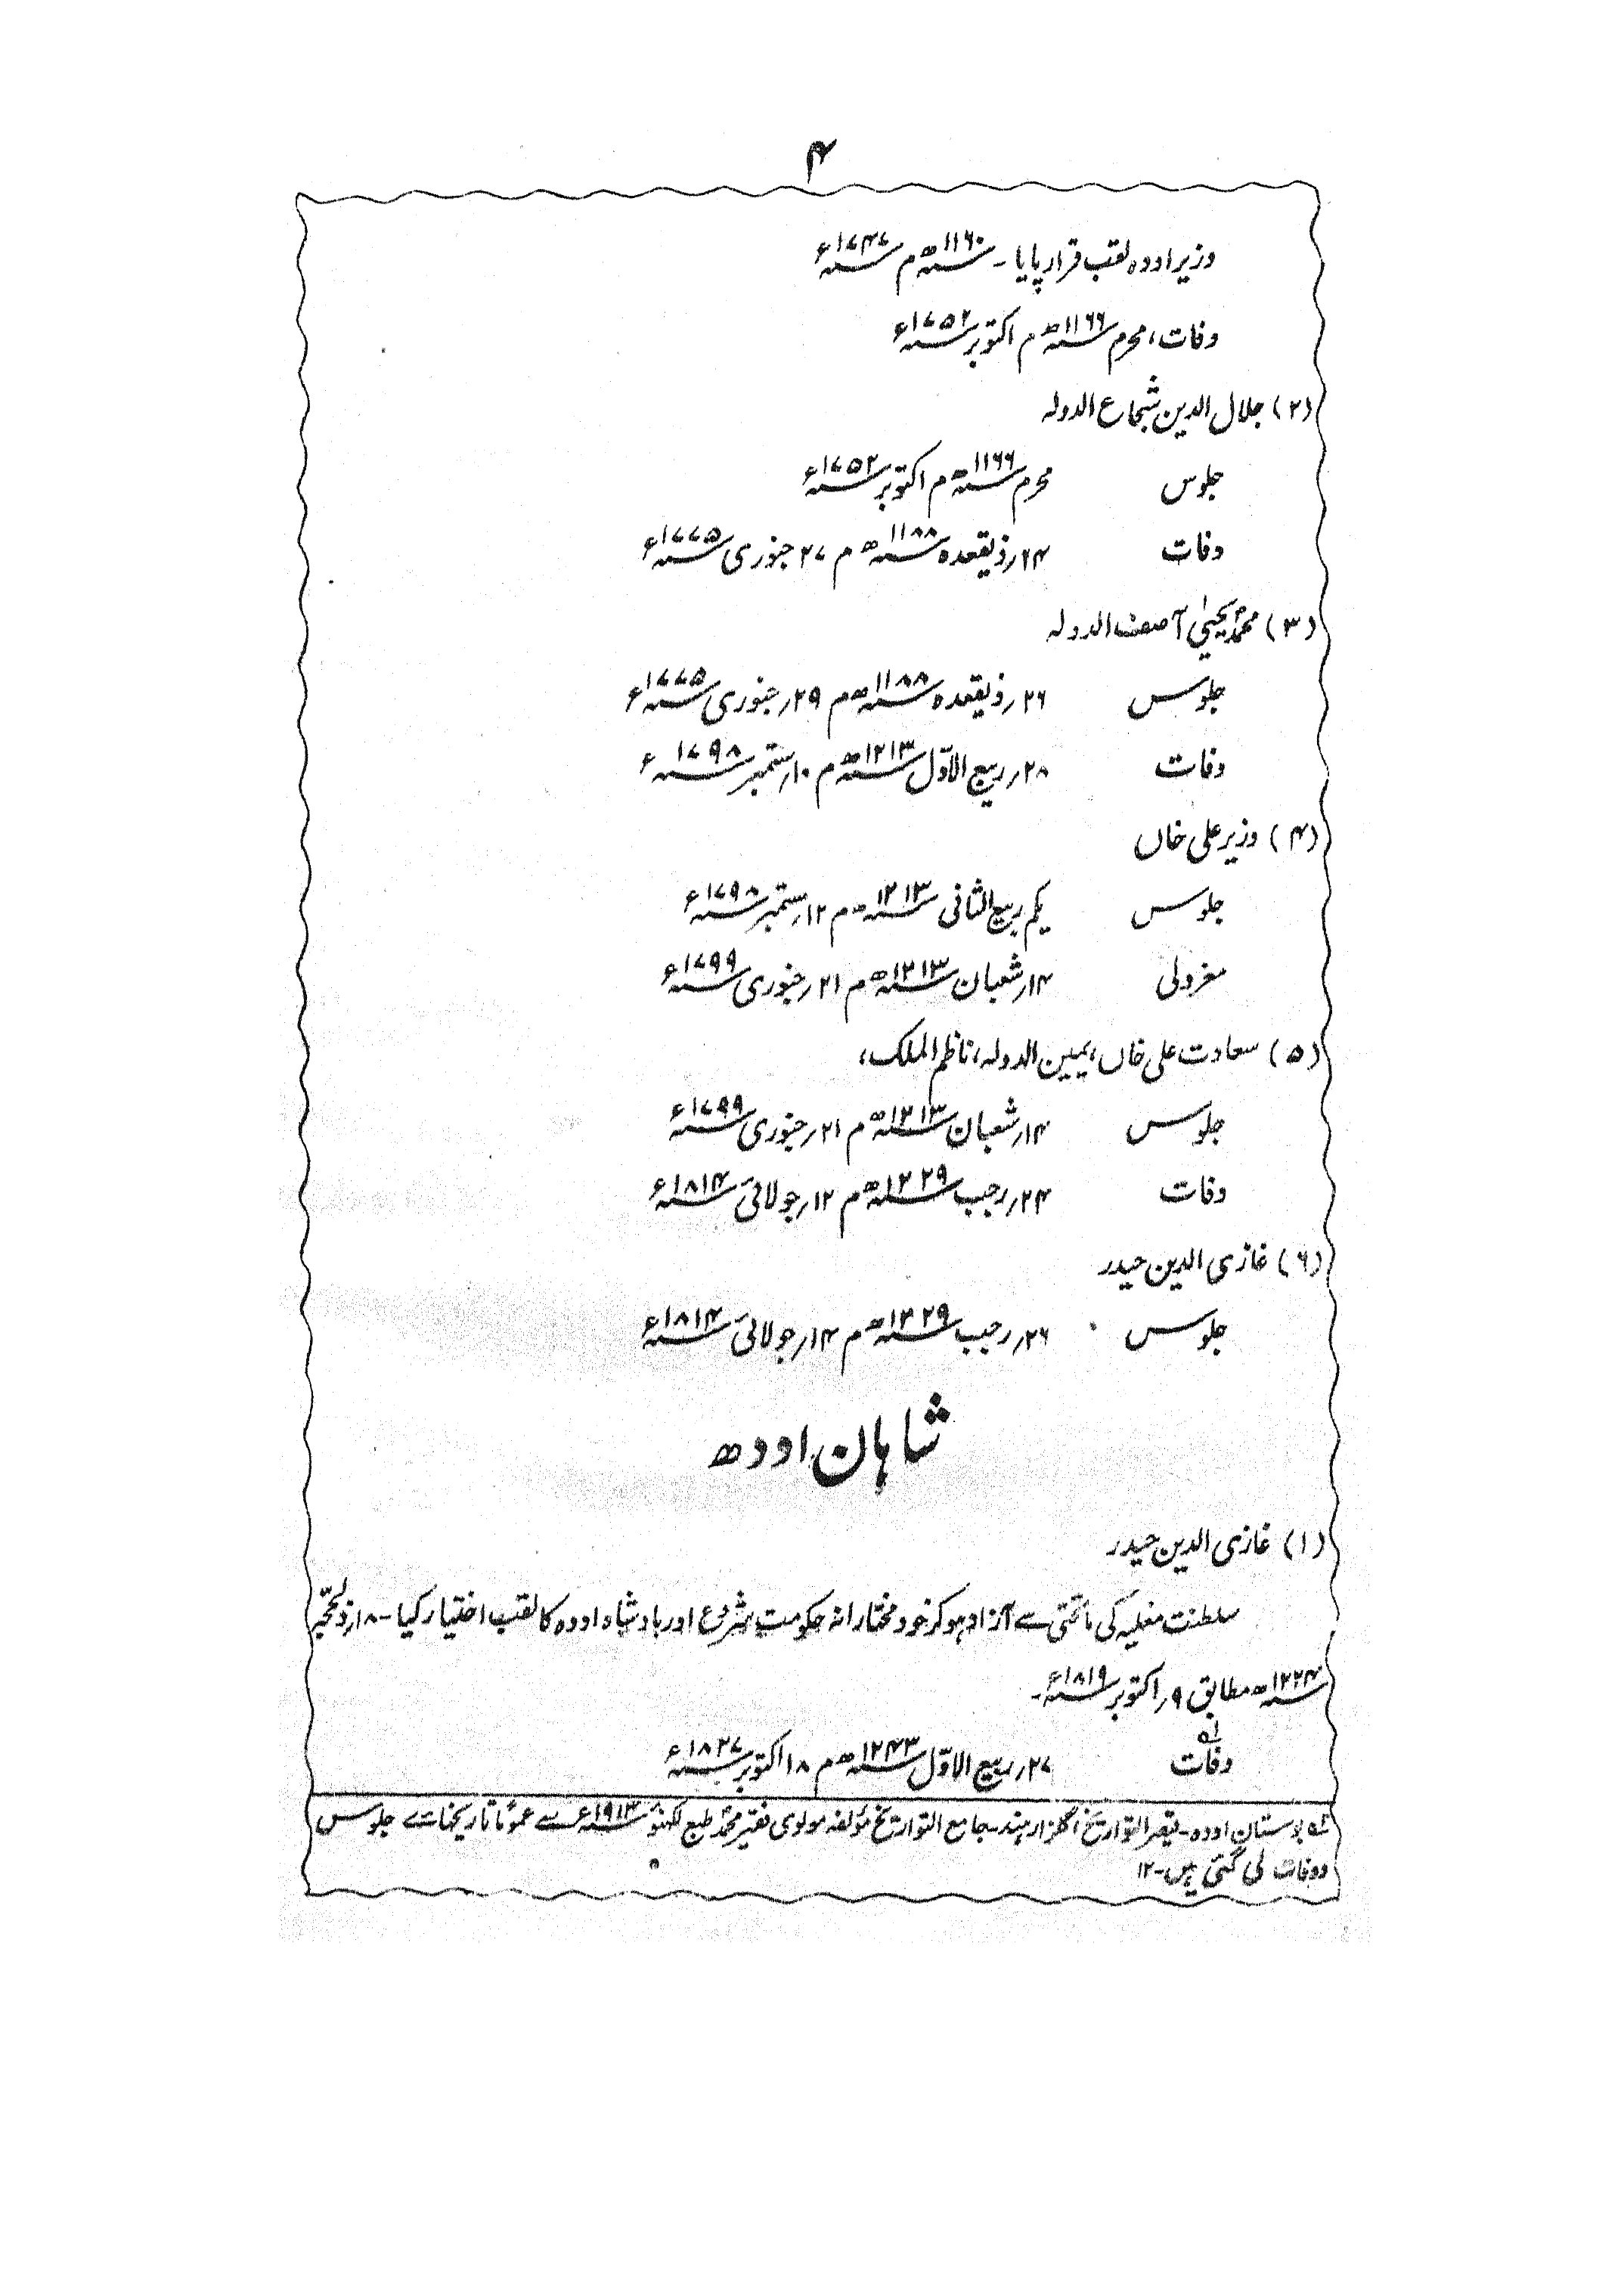 ۴
وزیر اودہ لقب قرار پایا۔ ۱۱۶۰ھ م ۱۷۴۷ء
وفات، محرم ۱۱۶۶ھ م اکتوبر ۱۷۵۲ء
(۲) جلال الدین شجاع الدولہ
جلوس محرم ۱۱۶۶ھ م اکتوبر ۱۷۵۲ء
وفات ۲۴؍ ذیقعدہ ۱۱۸۸ھ م ۲۷ جنوری ۱۷۷۵ء
(۳) محمد یحییٰ آصف الدولہ
جلوس ۲۶؍ ذیقعدہ ۱۱۸۸ھ م ۲۹؍ جنوری ۱۷۷۵ء
وفات ۲۸؍ ربیع الاوّل ۱۲۱۳ھ م ۱۰؍ ستمبر ۱۷۹۸ء
(۴) وزیر علی خاں
جلوس یکم ربیع الثانی ۱۲۱۳ھ م ۱۲؍ ستمبر ۱۷۹۸ء
معزولی ۱۴؍ شعبان ۱۲۱۳ھ م ۲۱؍ جنوری ۱۷۹۹ء
(۵) سعادت علی خاں، یمین الدولہ، ناظم الملک،
جلوس ۱۴؍ شعبان ۱۲۱۳ھ م ۲۱؍ جنوری ۱۷۹۹ء
وفات ۲۴؍ رجب ۱۲۲۹ھ م ۱۲؍ جولائی ۱۸۱۴ء
(۶) غازی الدین حیدر
جلوس ۲۶؍ رجب ۱۲۲۹ھ م ۱۴؍ جولائی ۱۸۱۴ء
شاہان اودھ
(۱) غازی الدین حیدر
سلطنت مغلیہ کی ماتحتی سے آزاد ہو کر خود مختارانہ حکومت شروع اور بادشاہ اودہ کا لقب اختیار کیا۔ ۱۸؍ ذی الحجہ
۱۲۲۴ھ مطابق ۹؍ اکتوبر ۱۸۱۹ء۔
وفات لہ ۲۷؍ ربیع الاوّل ۱۲۴۳ھ م ۱۸ اکتوبر ۱۸۲۷ء
لہ بوستان اودہ۔ قیصر التواریخ، گلزار ہند۔ جامع التواریخ مؤلفہ مولوی فقیر محمد طبع لکھنؤ ۱۹۱۳ء سے عموماً تاریخہائے جلوس
ووفات لی گئی ہیں۔ ۱۲